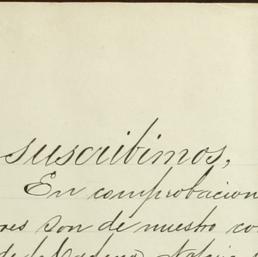 suscribimos,
En comprobacion
res son de nuestro co